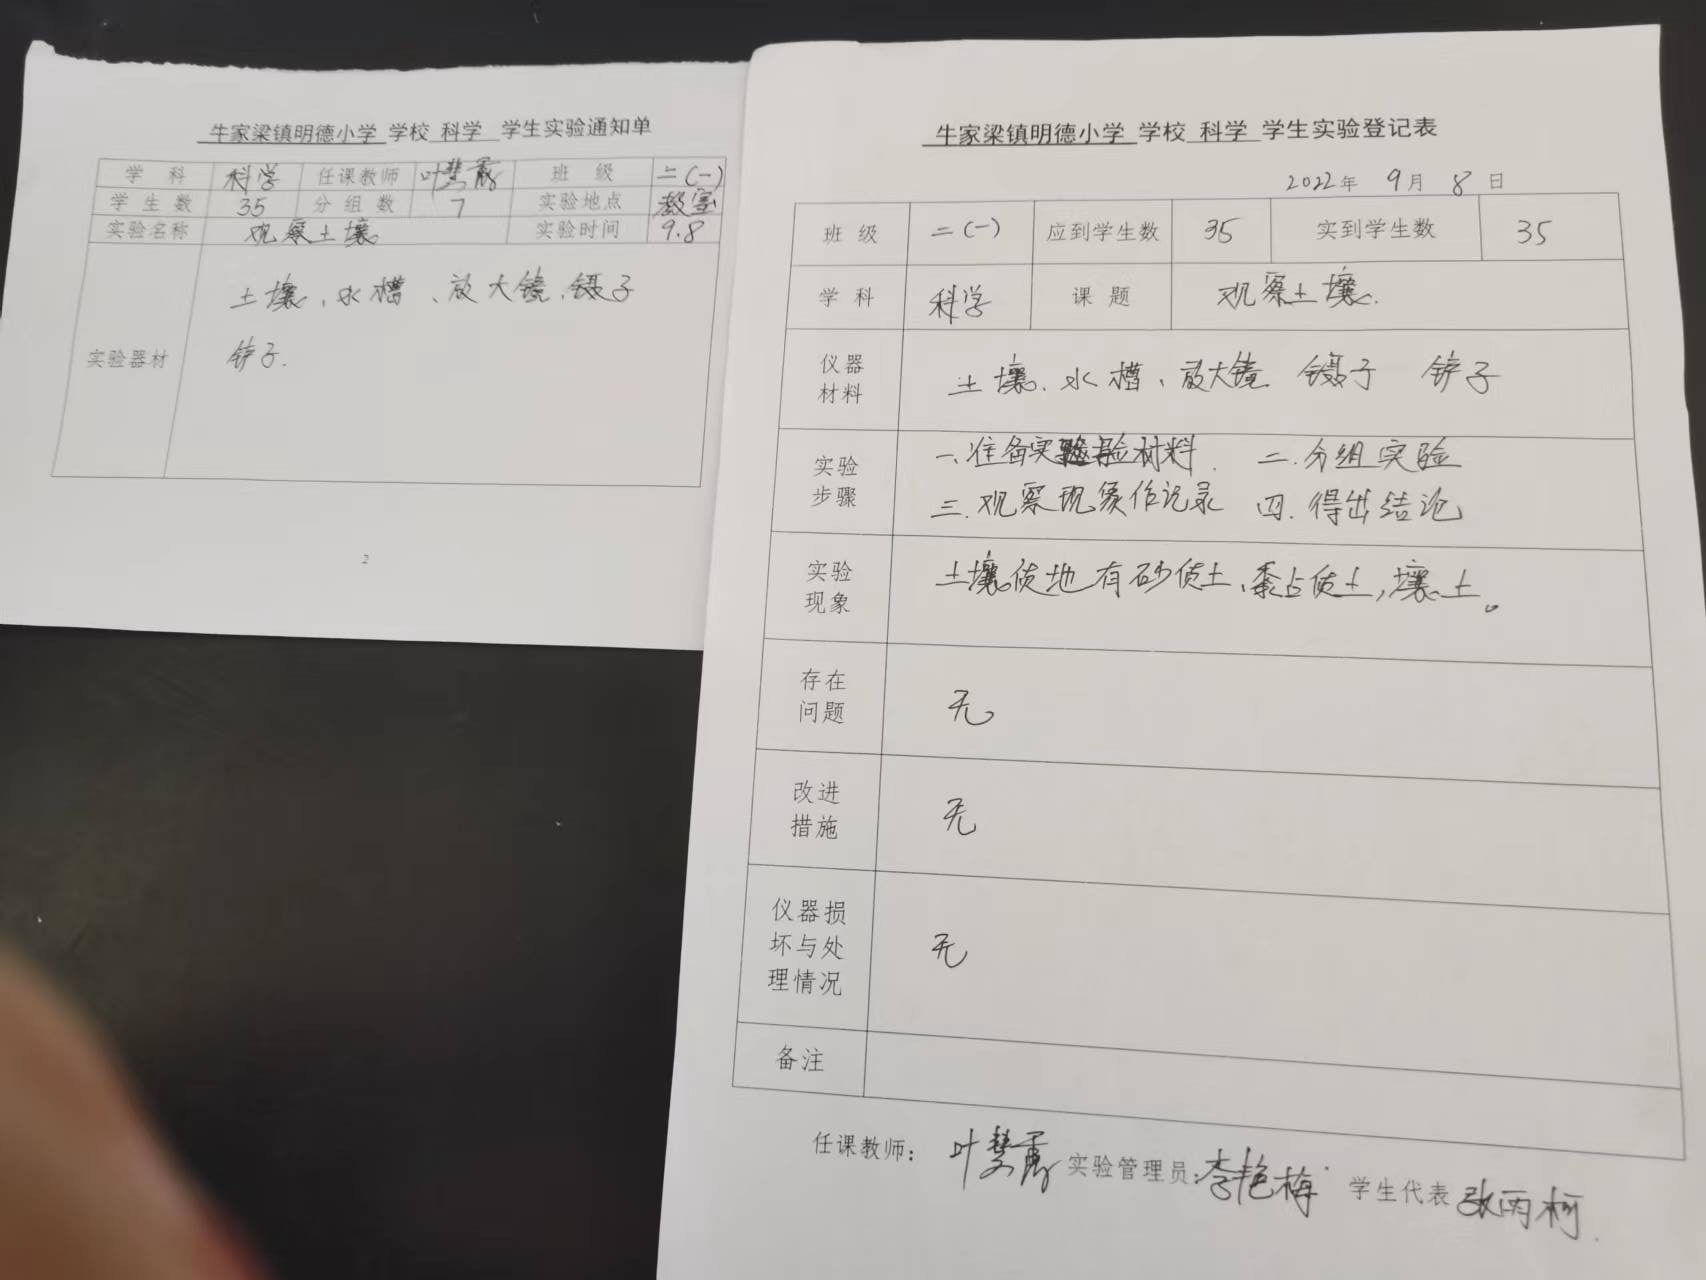 牛家梁镇明德小学 学校 科学 学生实验通知单
学 科 科学 任课教师 叶慧霞 班 级 二(一)
学 生 数 35 分 组 数 7 实验地点 教室
实验名称 观察土壤 实验时间 9.8
土壤、水槽、放大镜、镊子
实验器材 铲子.
2
牛家梁镇明德小学 学校 科学 学生实验登记表
2022年 9月 8日
班 级 二(一) 应到学生数 35 实到学生数 35
学 科 科学 课 题 观察土壤.
仪器
材料
土壤、水槽、放大镜 镊子 铲子
实验
步骤
一、准备实验材料. 二.分组实验
三.观察现象作记录 四.得出结论
实验
现象
土壤质地有砂质土、黏质土,壤土。
存在
问题
无
改进
措施
无
仪器损
坏与处
理情况
无
备注
任课教师: 叶慧霞 实验管理员:李艳梅 学生代表 张雨柯.